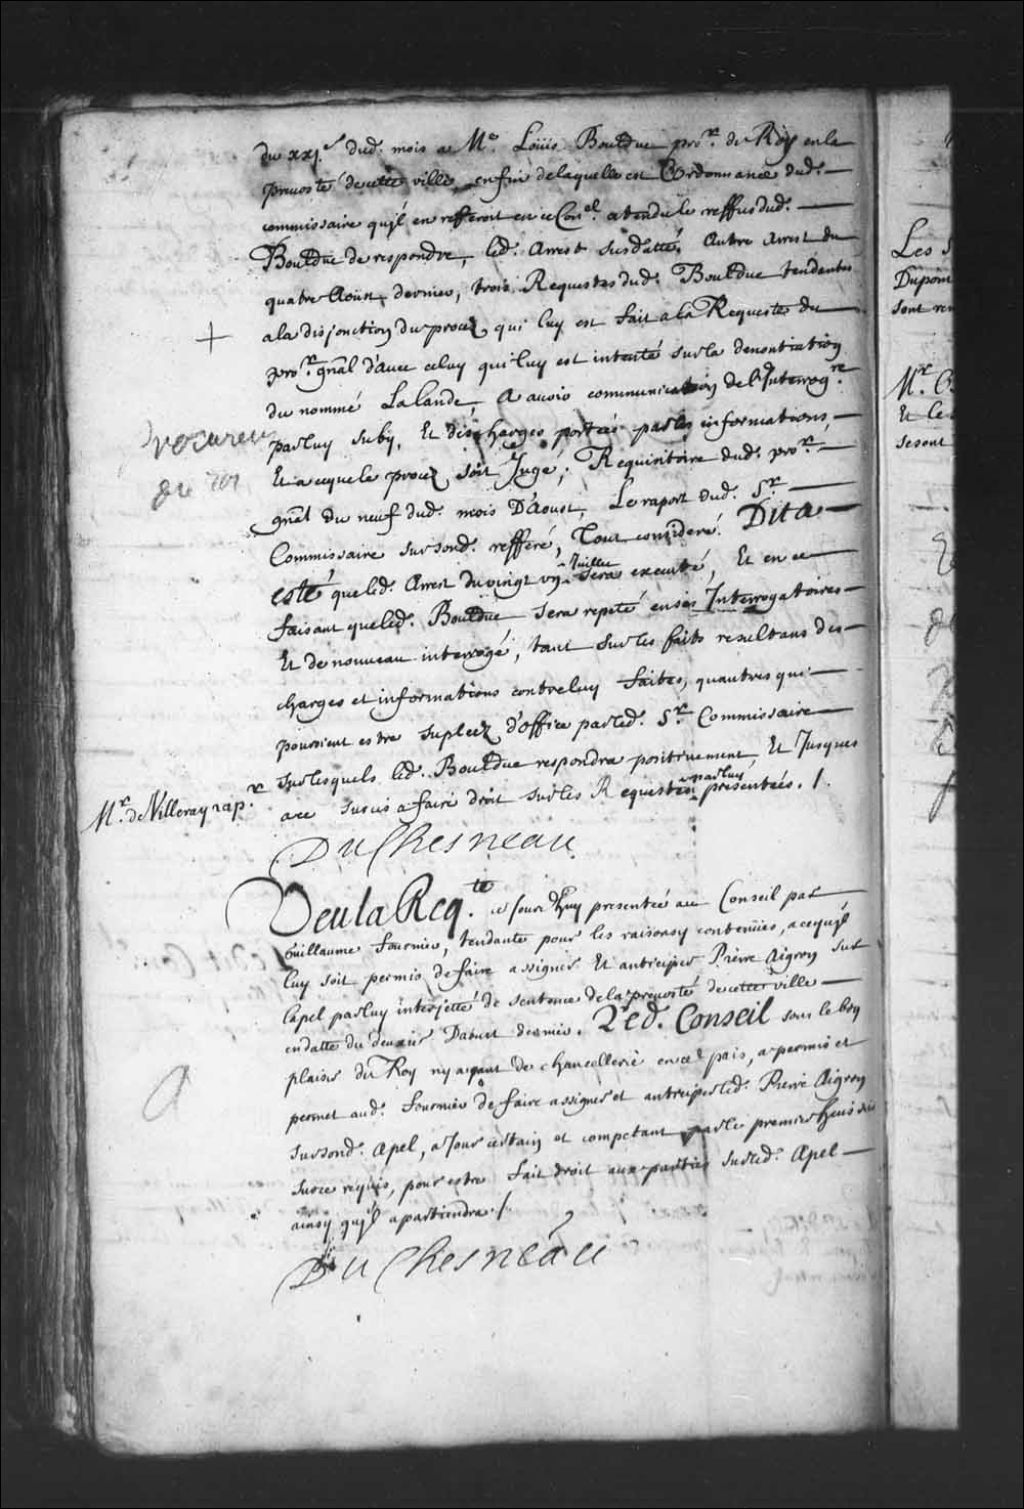 du xxj.e dud. mois a M.e Loüis Boulduc pro.r du Roy en la
preuosté de cette ville, en fin de laquelle est L'ordonnance dud.
commissaire qu'jl en refferoit en ce Con.el attendu le reffus dud.
Boulduc de respondre, led. Arrest susdatté, Autre Arrest du
quatre Aoust dernier, trois Requestes dud. Boulduc tendantes
a la disjonction du procez qui luy est fait a la Requeste du
pro.r gnãl d'auec celuy qui luy est intenté sur la denontiation
du nommé LaLande, A auoir communication de l'Interrog.re
par luy suby, Et des charges portées par les informations,
Et a ce que le procez soit Jugé; Requisitoire dud. pro.r
gnãl du neuf dud. mois D'Aoust, Le raport dud. S.r
Commissaire sur sond. refferé, Tout consideré. Dit a
esté que led. Arrest du vingt vn.e Juillet sera executé, Et en ce
faisant que led. Boulduc sera repeté en ses Interrogatoires
Et de nouueau interrogé, tant sur les faits resultans des
charges et informations contre luy faites, qu'autres qui
pouroient estre supleez d'office par led. S.r Commissaire
sur lesquels led. Boulduc respondra positiuement, Et Jusques
a ce sursis a faire droit sur les Requestes par luy presentées. /.
M.r de Villeray rap.r
procureur
du roi
DuChesneau
Veu la Req.te ce Jourd'huy presentée au Conseil par
Guillaume Fournier, tendante pour les raisons y contenües, a ce qu'jl
luy soit permis de faire assigner Et anticiper Pierre Aigron sur
l'apel par luy interjetté de sentence de la preuosté de cette ville
en datte du deuxie D'aoust dernier. Led. Conseil sous le bon
plaisir du Roy n'y ayant de chancellerie en ce pais, a permis et
permet aud. Fournier de faire assigner et anticiper led. Pierre Aigron
sur sond. Apel, a Jour certain et competant par le premier huissier
sur ce requis, pour estre fait droit aux parties sur led. Apel
ainsy qu'jl apartiendra. /.
DuChesneau
Les
Dupont
sont
M.r
Et